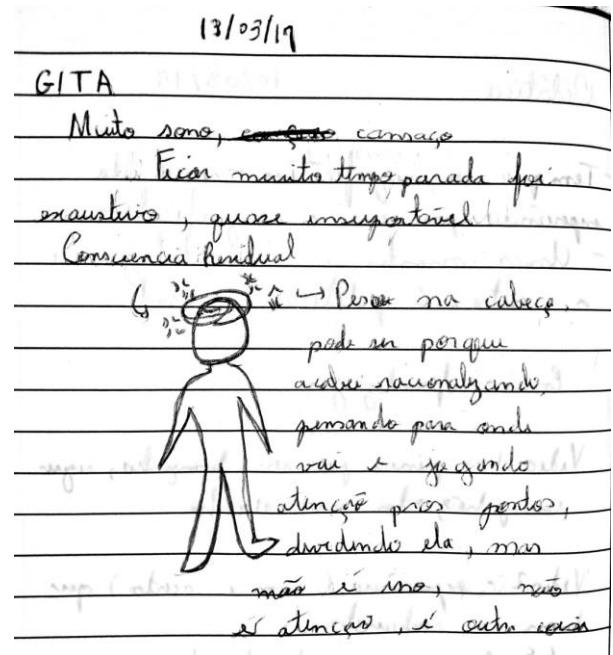 13/03/19
GITA
Muito sono, cansaço
Ficar muito tempo parada foi
exaustivo, quase insuportável
Consciencia Residual
→ Peso na cabeça,
pode ser porque
acabei racionalizando,
pensando para onde
vai e jogando
atenção pros pontos,
dividindo ela, mas
não é isso, não
é atenção, é outra coisa